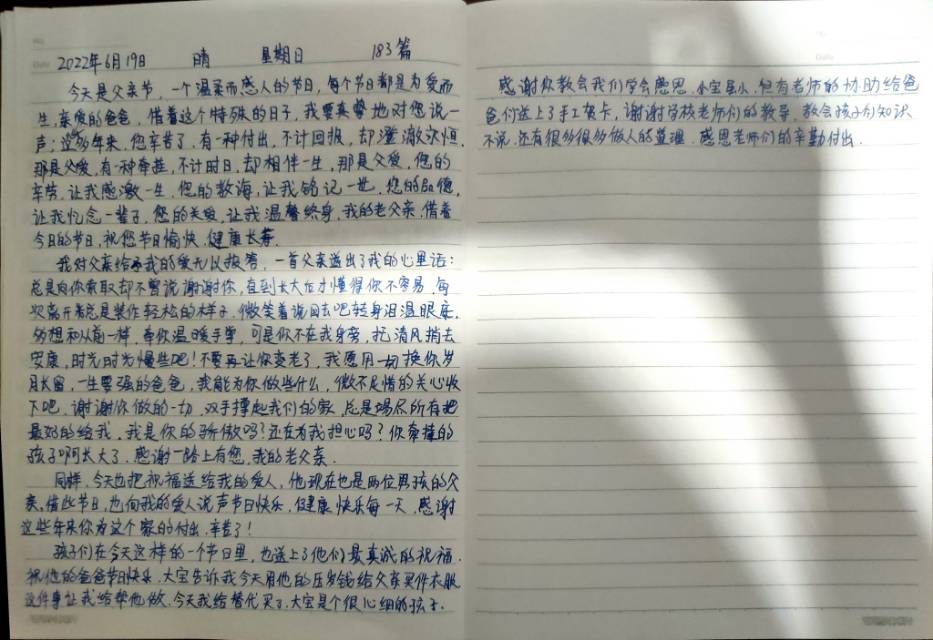 2022年6月19日 晴 星期日 183篇
今天是父亲节,一个温柔而感人的节日,每个节日都是为爱而
生,亲爱的爸爸,借着这个特殊的日子,我要真挚地对您说一
声:这些年来,您辛苦了,有一种付出,不计回报,却澄澈永恒,
那是父爱,有一种牵挂,不计时日,却相伴一生,那是父爱,您的
辛劳,让我感激一生,您的教诲,让我铭记一世,您的
让我忆念一辈子,您的关爱,让我温馨终身,我的老父亲,借着
今日的节日,祝您节日愉快,健康长寿.
我对父亲给予我的爱无以报答,一首父亲道出了我的心里话:
总是向你索取却不曾说谢谢你,直到长大后才懂得你不容易,每
次离开者总是装作轻松的样子,微笑着说回去吧转身泪湿眼底.
多想和从前一样,牵你温暖手掌,可是你不在我身旁,托清风捎去
安康,时光时光慢些吧!不要再让你变老了,我愿用一切换你岁
月长留,一生要强的爸爸,我能为你做些什么,微不足惜的关心收
下吧,谢谢你做的一切,双手撑起我们的家,总是竭尽所有把
最好的给我,我是你的骄傲吗?还在为我担心吗?你牵挂的
孩子啊长大了,感谢一路上有您,我的老父亲.
同样,今天也把祝福送给我的爱人,他现在也是两位男孩的父
亲,借些节日,也向我的爱人说声节日快乐,健康快乐每一天,感谢
这些年来你为这个家的付出,辛苦了!
孩子们在今天这样的一个节日里,也送上了他们最真诚的祝福.
祝他的爸爸节日快乐,大宝告诉我今天用他的压岁钱给父亲买件衣服
这件事让我给帮他做,今天我给替代买了,大宝是个很心细的孩子.
感谢你教会我们学会感恩,小宝虽小,但有老师的协助给爸
爸们送上了手工贺卡,谢谢学校老师们的教导,教会孩子们知识
不说,还有很多很多做人的道理,感恩老师们的辛勤付出.